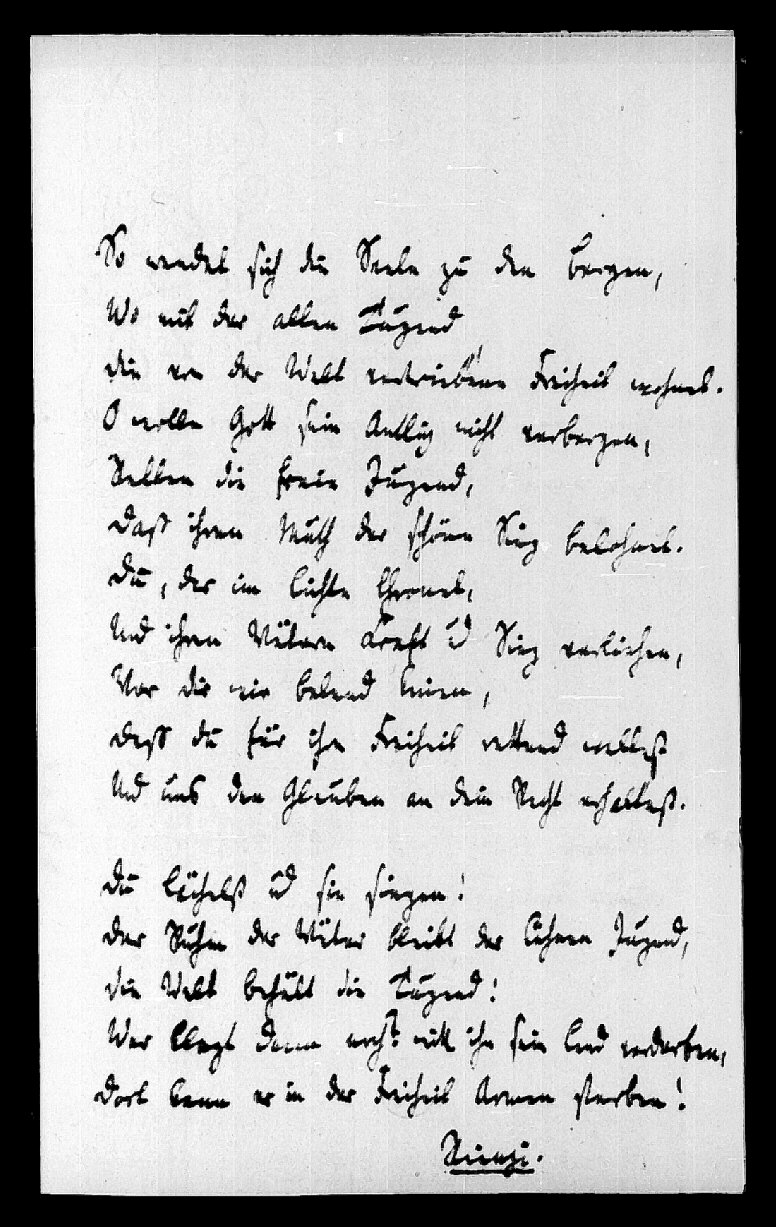 So wendet sich die Seele zu den Bergen,
Wo mit der alten Tugend
die von der Welt vertriebene Freiheit wohnet.
O wolle Gott sein Antlitz nicht verbergen,
Selben die freie Jugend,
Daß ihren Muth der schöne Sieg belohnet.
Du, der im Lichte thronet,
Und ihren Vätern Kraft u̅d Sieg verliehen,
Vor dir wir betend knieen,
Daß du für ihre Freiheit rettend wallest
Und uns den Glauben an dein Recht erhaltest.
Du lächelst u̅d sie siegen!
Der Ruhm der Väter bleibt der kühnen Jugend,
die Welt behält die Tugend!
Wer klagt denn noch? will ihr sein Land verderben,
Dort kann er in der Freiheit Armen sterben!